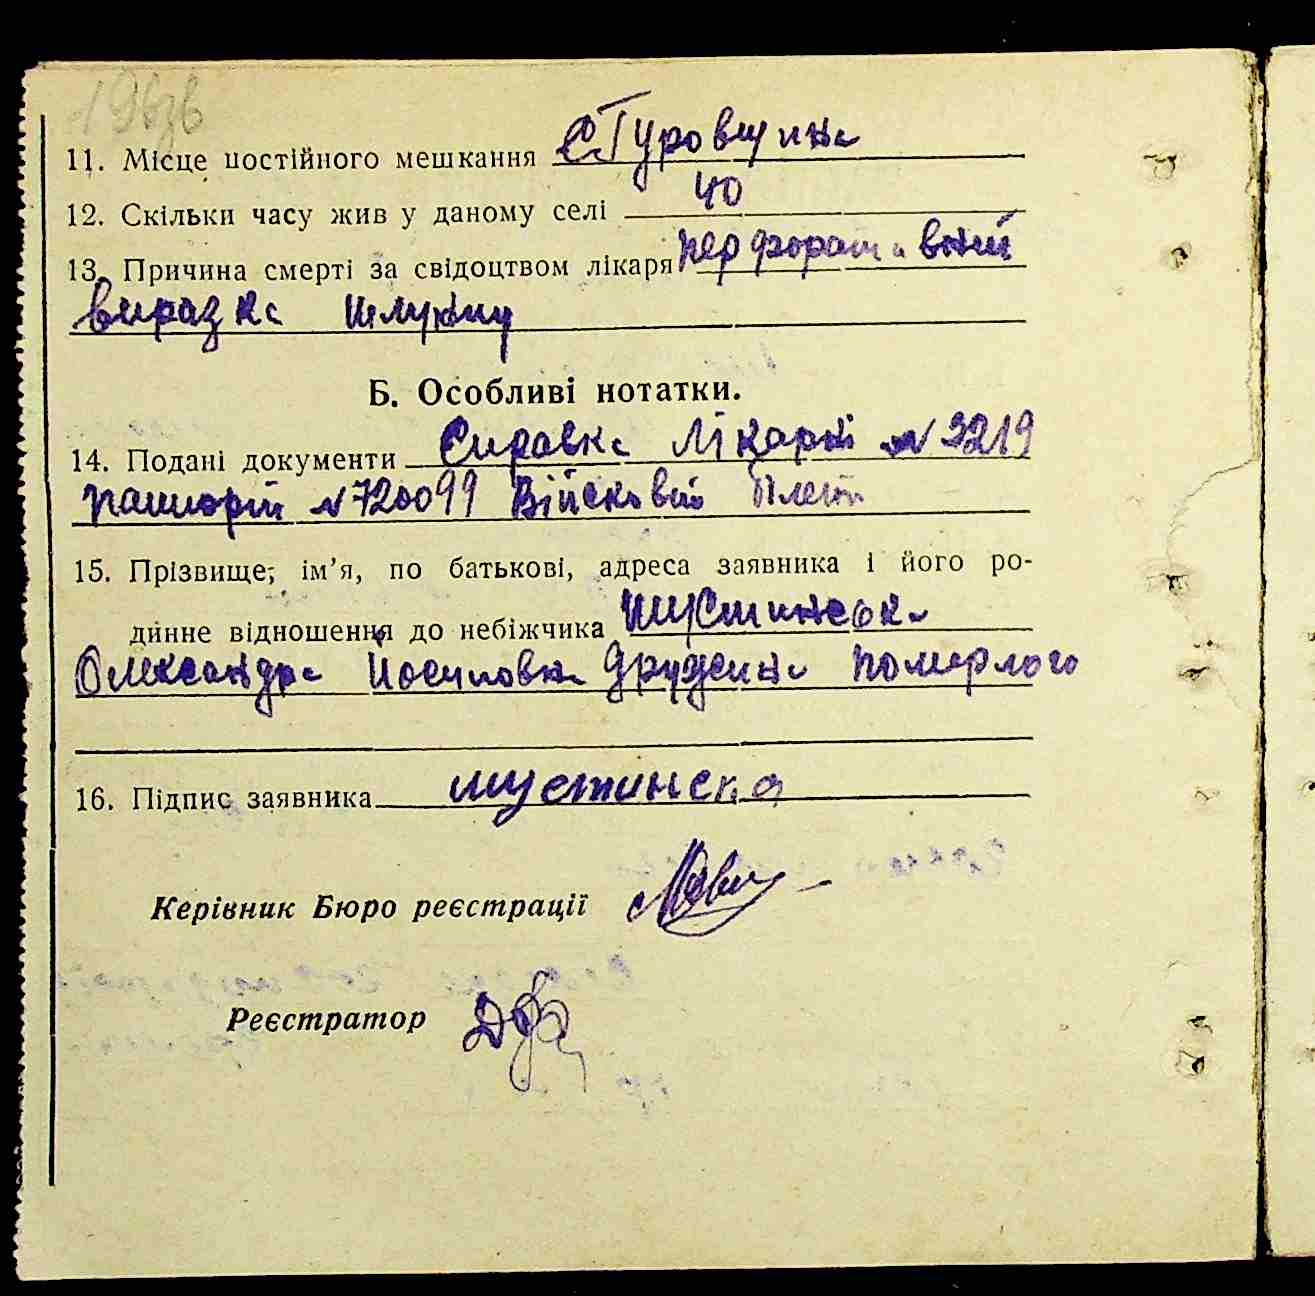 11. Місце постійного мешкання с Туровщина
12. Скільки часу жив у даному селі 40
13. Причина смерті за свідоцтвом лікаря перфоративний
виразка шлунку
Б. Особливі нотатки.
14. Подані документи Справка Лікарні № 3219
паспорт № 720099 Військовий білет
15. Прізвище, ім’я, по батькові, адреса заявника і його ро-
динне відношення до небіжчика Шустинська
Олександра Йосиповна дружина померлого
16. Підпис заявника Шустинска
Керівник Бюро реєстрації
Реєстратор